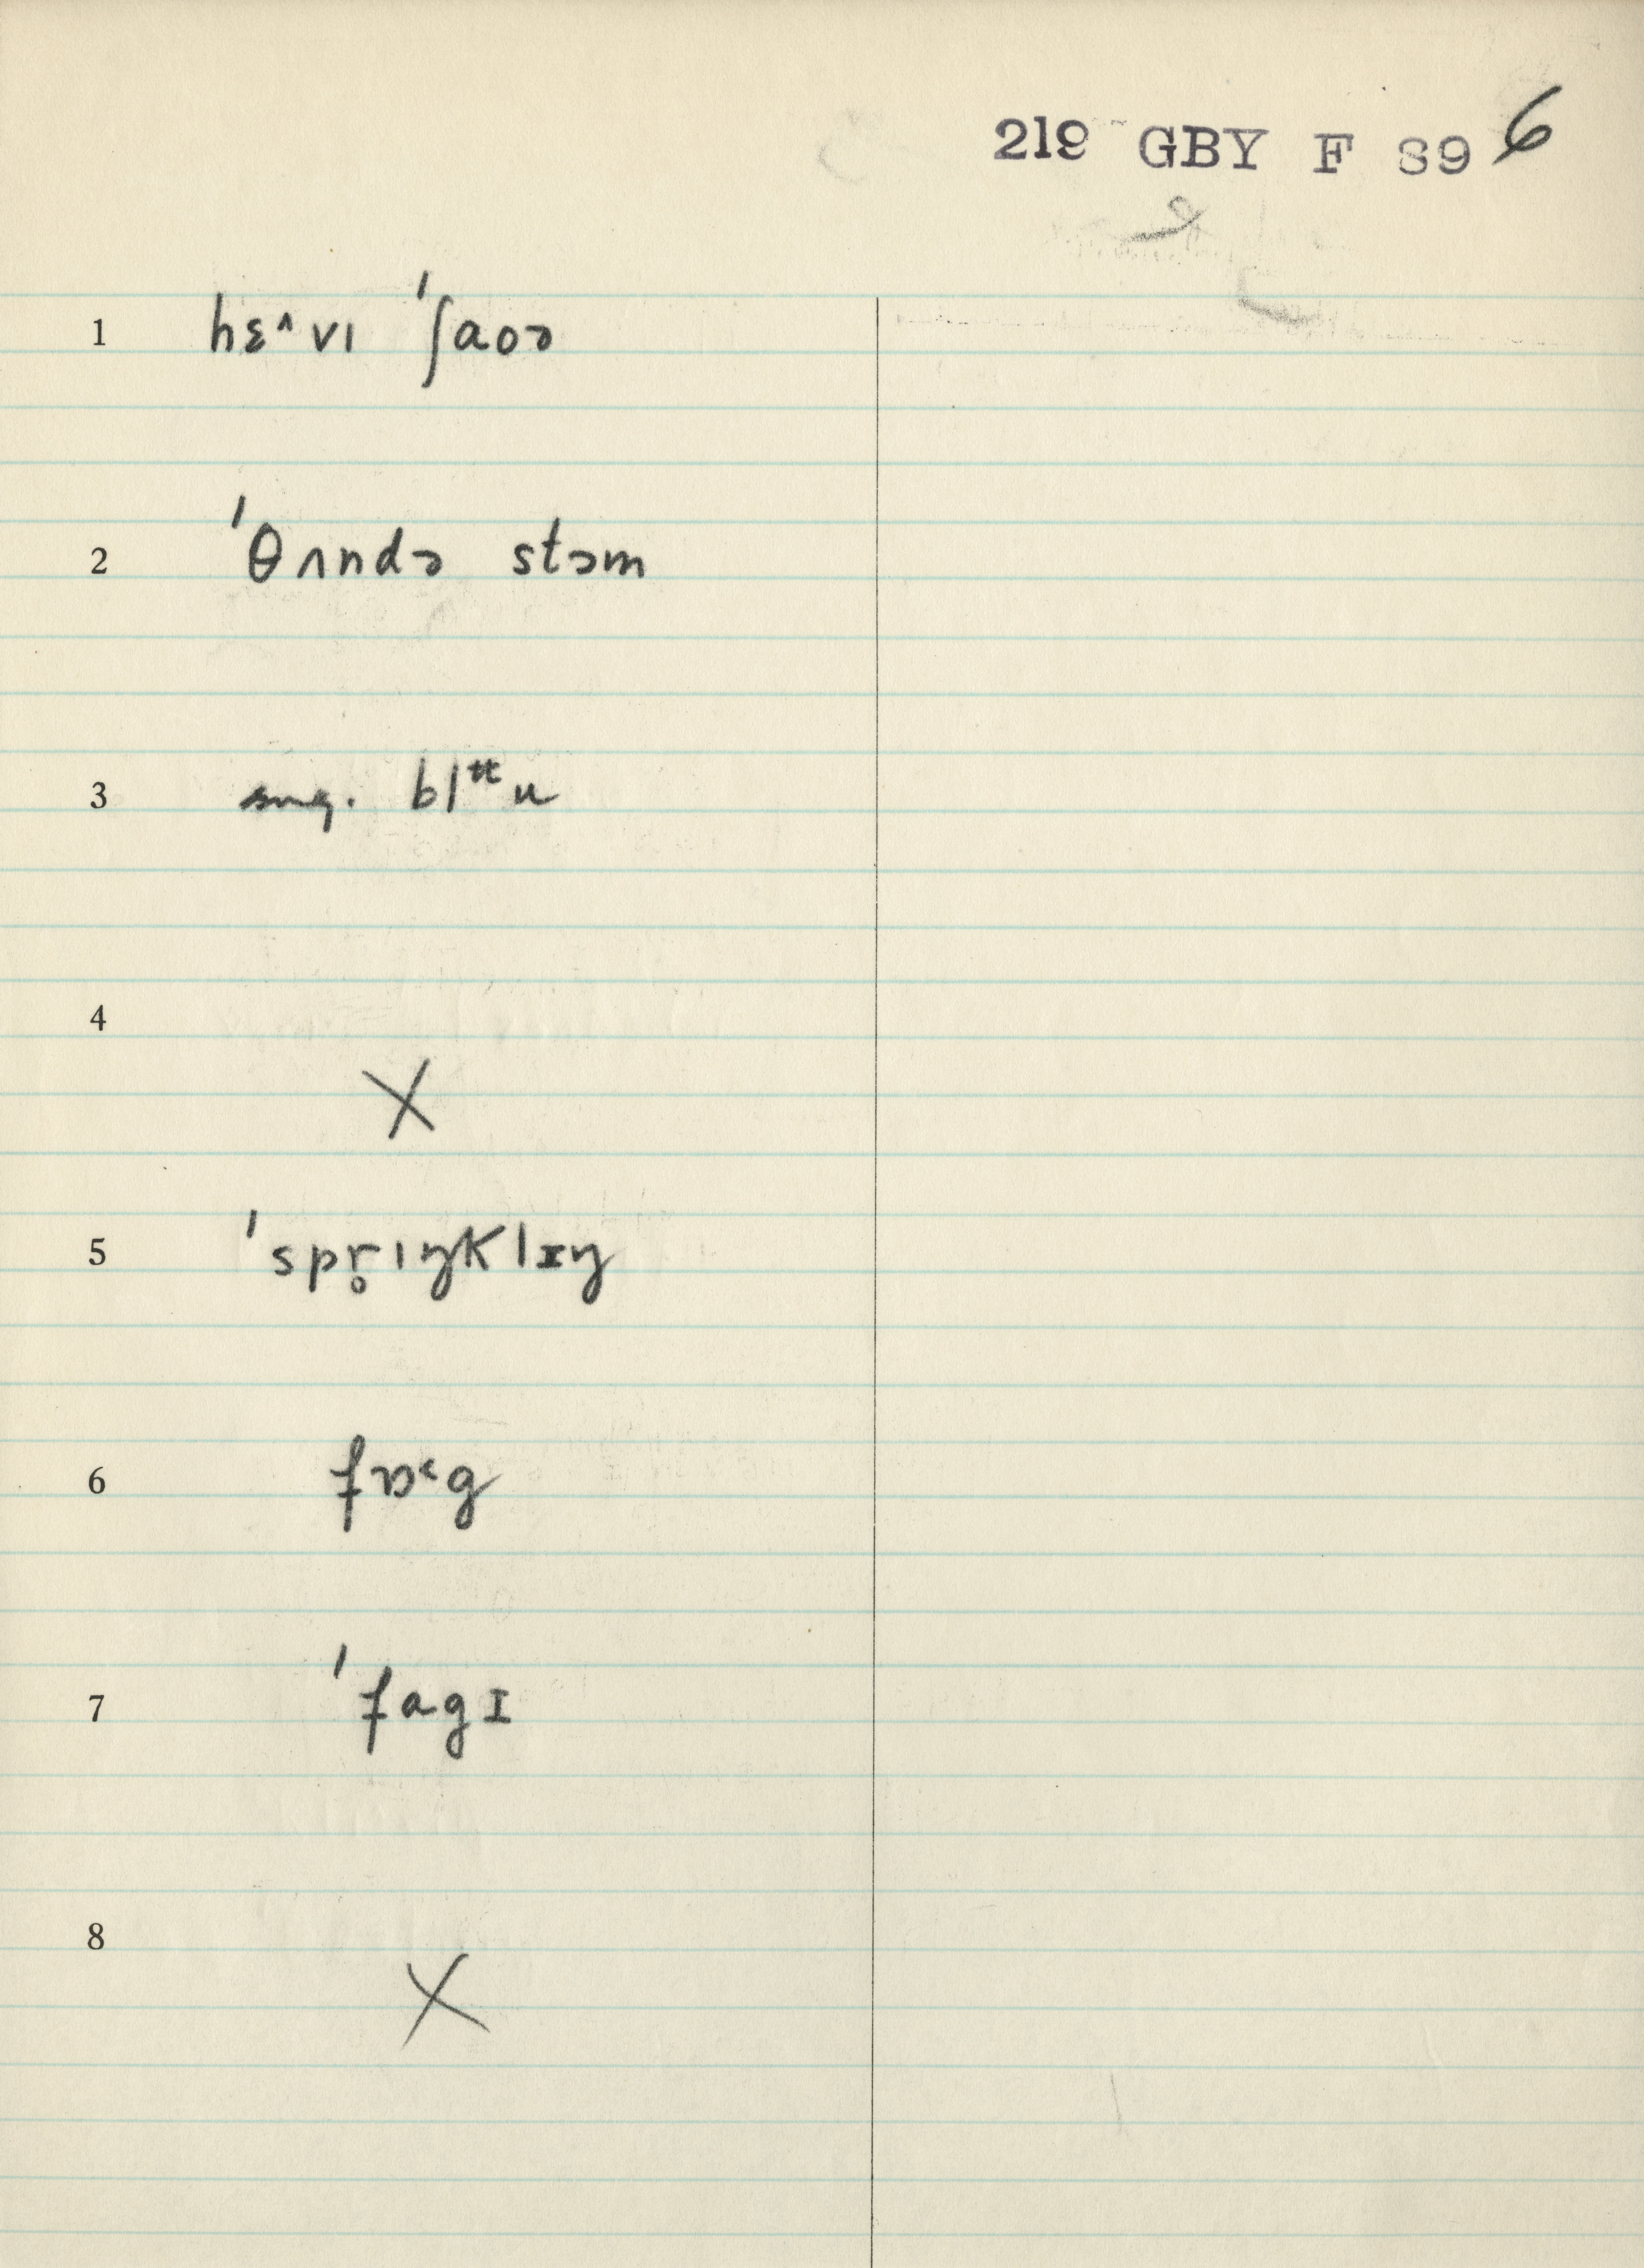 219 GBY F 89 6
1 hɛ^vɪ ˈʃaoə
2 ˈθʌndə stɔm
3 sug. blᵗᵗu
4 X
5 ˈspr̥ɪŋklɪŋ
6 fɒ˂g
7 ˈfagɪ
8 X